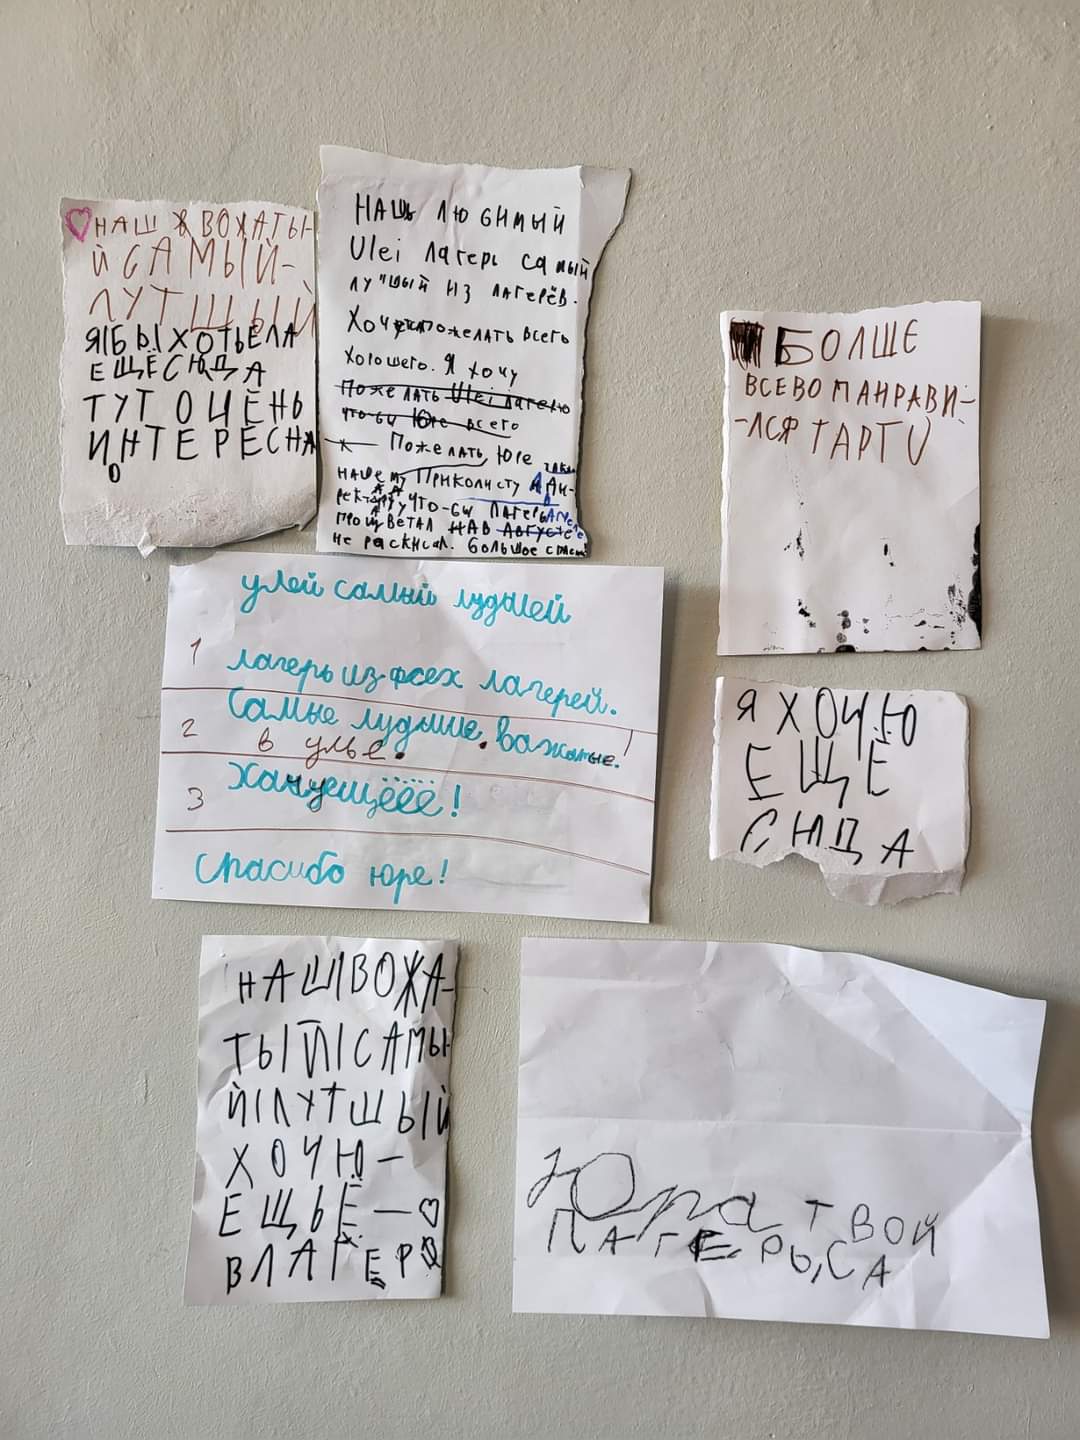 НАШ ВОЖАТЫ-
Й САМЫЙ-
ЛУТШЫЙ
Я БЫ ХОТЬЕЛА
ЕЩЁ СЮДА
ТУТ ОЧЕНЬ
ИНТЕРЕСНА
О
НАШЬ ЛЮБИМЫЙ
Ulei лагерь самый
лучшый из лагерёв.
Хочу пожелать всего
хорошего. Я хочу
Пожелать Ulei лагерю
что-бы Юре всего
Пожелать Юре
нашему Приколисту Ди-
ректару что-бы лагерь
процветал НАВ АВГУСТЕ
не раскисал. большое спаси
БОЛШЕ
ВСЕВО МАНРАВИ-
-ЛСЯ ТАРТU
улей самый лудшей
1 лагерь из фсех лагерей.
2 Самые лудшие. важатые.
в улье.
3 Хачуещёёё!
Спасибо юре!
Я ХОЧЮ
ЕЩЁ
СЮДА
НАШ ВОЖА-
ТЫЙ САМЫ
Й ЛУТШЫЙ
ХОЧЮ-
ЕЩЬЁ-
ВЛАГЕРЬ
Юра ТВОЙ
ЛАГЕРЬ, СА